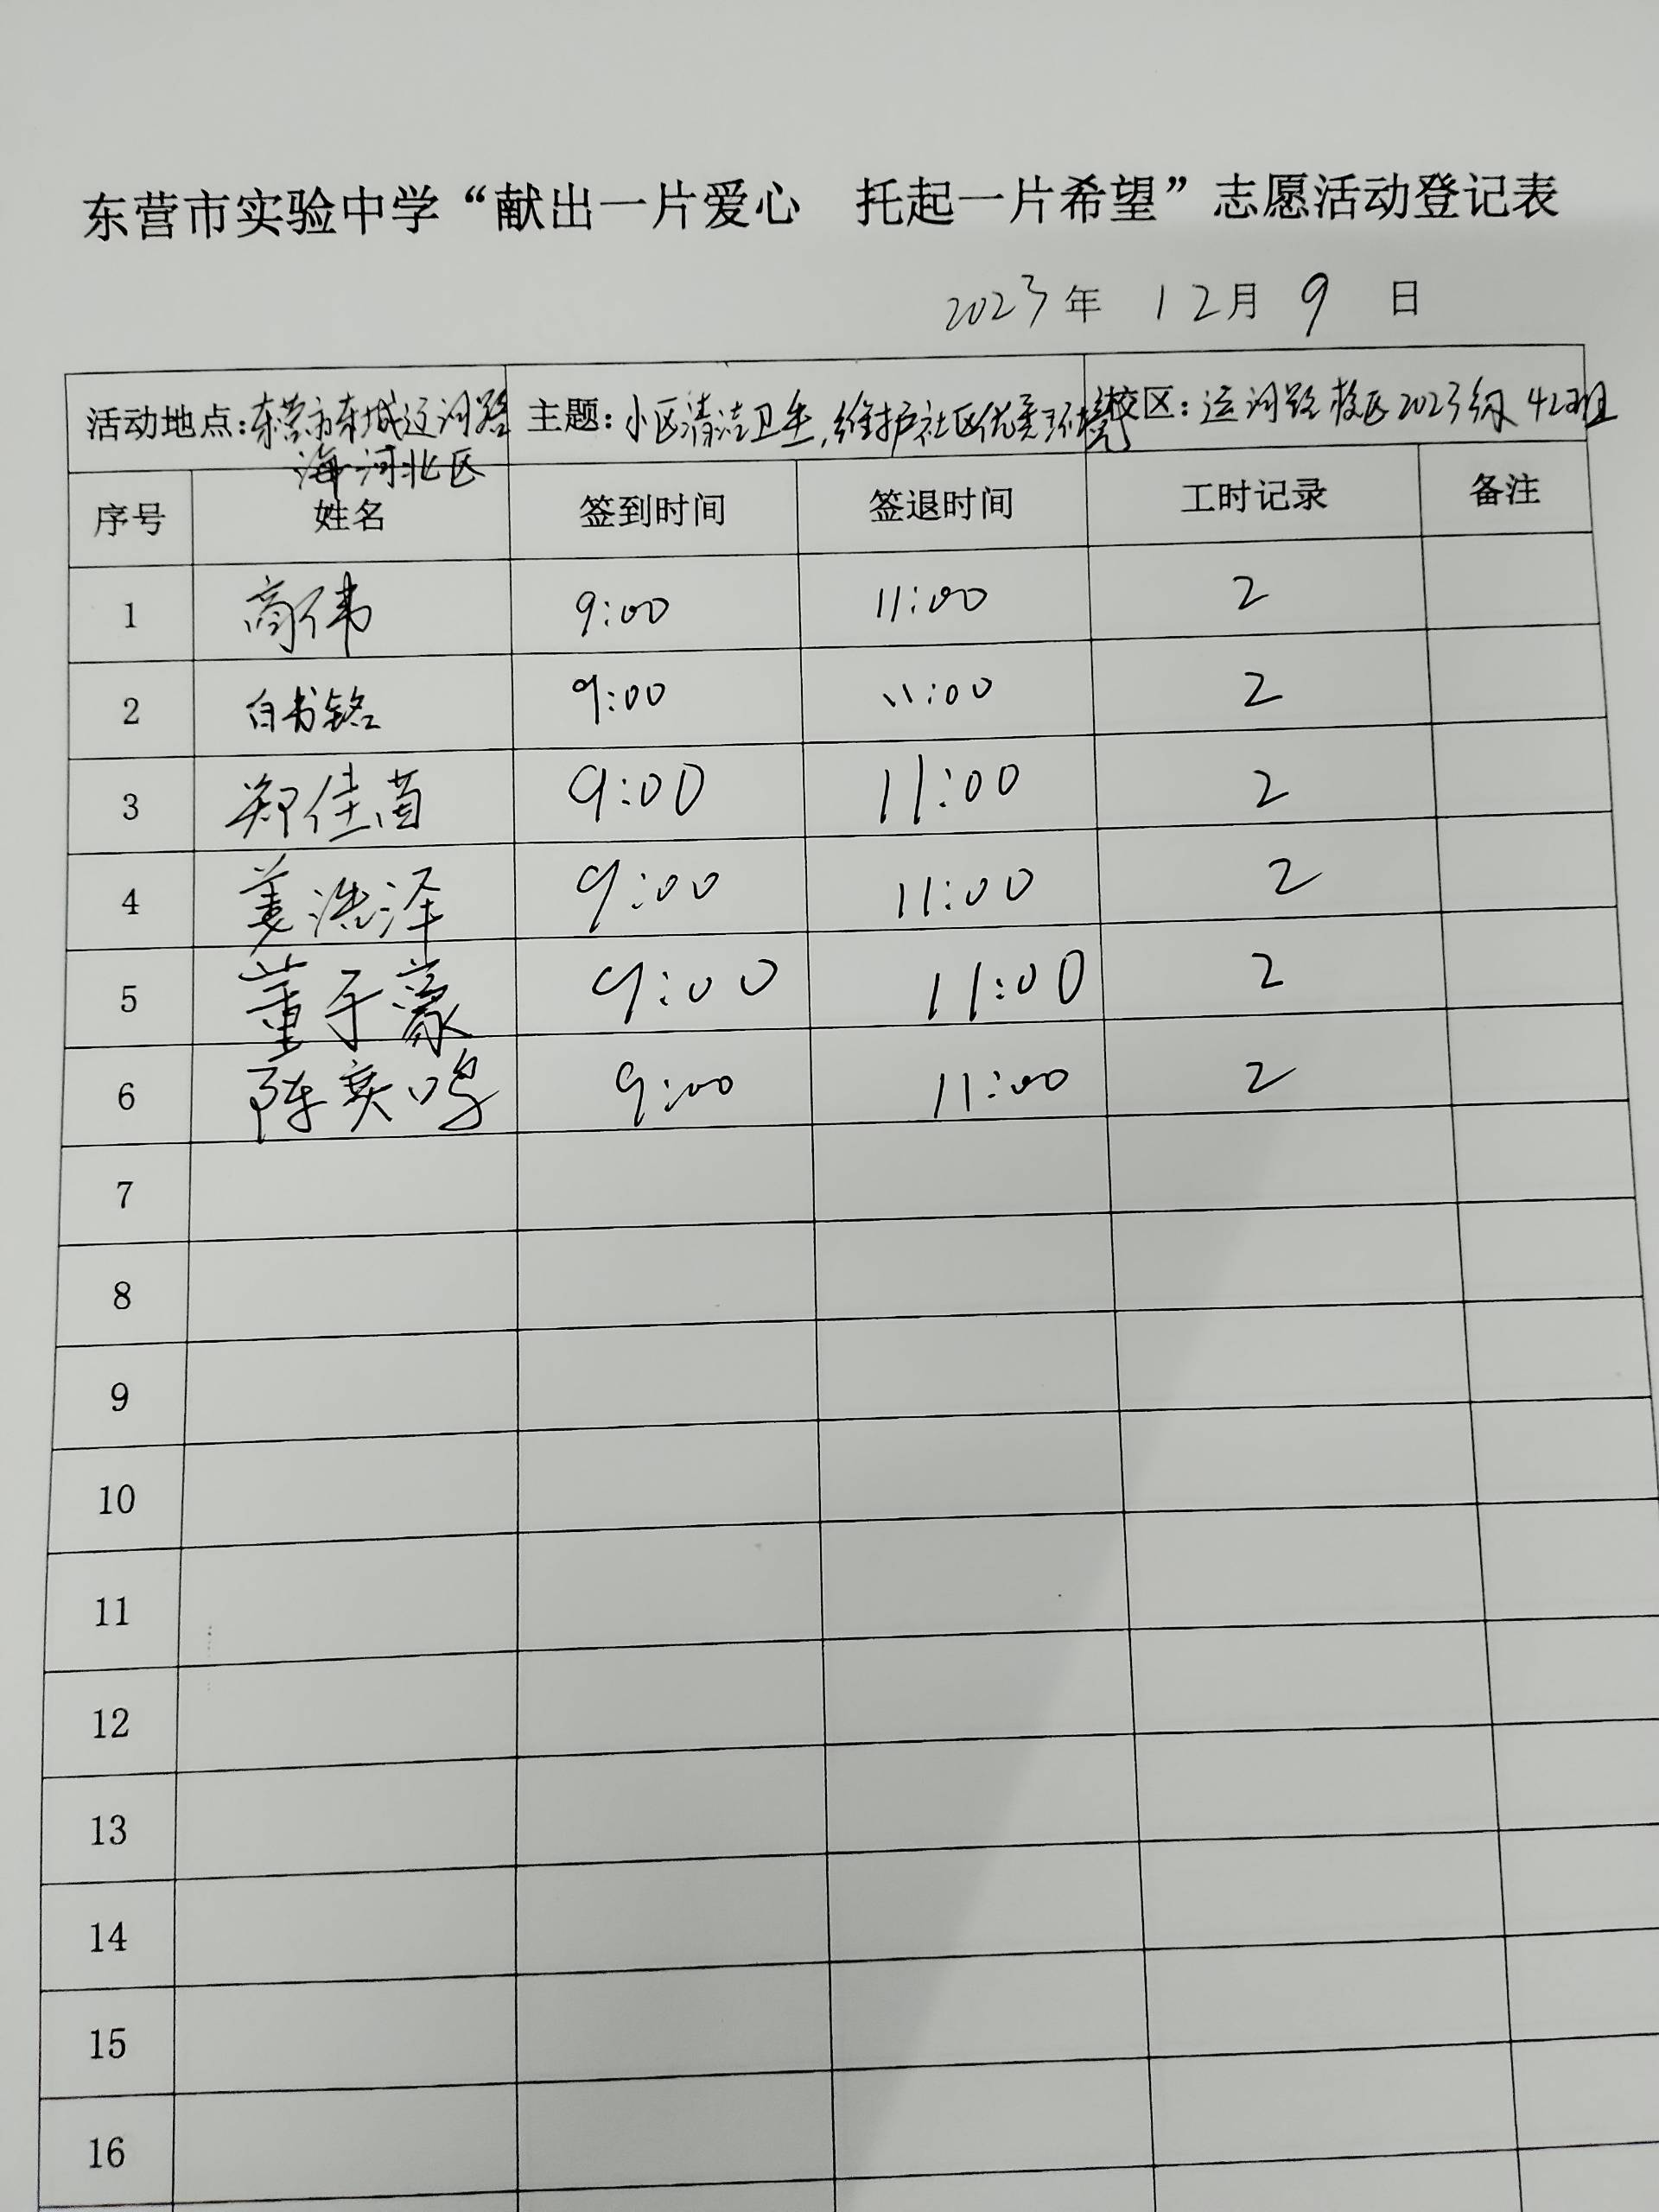 东营市实验中学“献出一片爱心 托起一片希望”志愿活动登记表
2023年 12月 9 日
活动地点:东营市东城辽河路 主题:小区清洁卫生,维护社区优美环境 校区:运河路校区2023级42班
海河北区
序号 姓名 签到时间 签退时间 工时记录 备注
1 商伟 9:00 11:00 2
2 白书铭 9:00 11:00 2
3 郑佳茵 9:00 11:00 2
4 姜浩泽 9:00 11:00 2
5 董子蒙 9:00 11:00 2
6 陈奕鸣 9:00 11:00 2
7
8
9
10
11
12
13
14
15
16